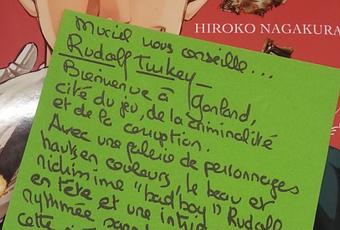 HIROKO NAGAKURA
Muriel vous conseille...
Rudolf Turkey
Bienvenue à Gonland,
cité du jeu, de la criminalité
et de la corruption.
Avec une galerie de personnages
hauts en couleurs, le beau et
richissime "bad boy" Rudolf
en tête et une
rythmée sans
cette